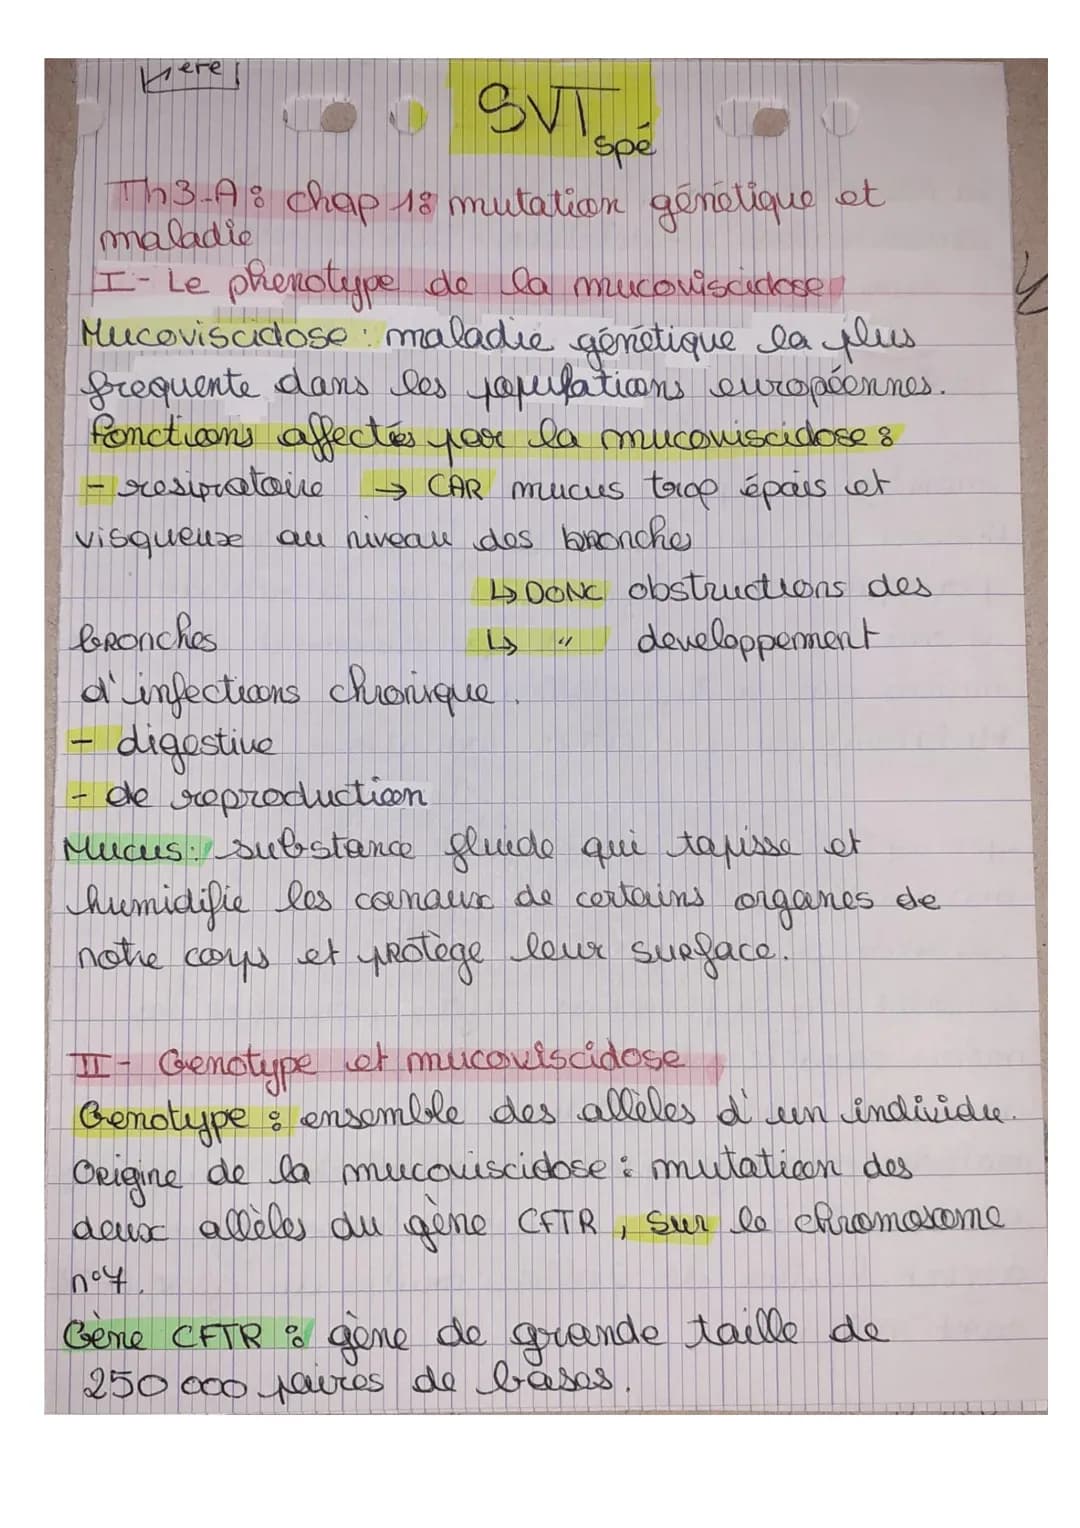 1ere
SVT
spé
Th3-A : chap 1 : mutation génétique et
maladie
I - Le phenotype de la mucoviscidose
Mucoviscidose : maladie génétique la plus
frequente dans les populations européennes.
fonctions affectés par la mucoviscidose :
- respiratoire → CAR mucus trop épais et
visqueux au niveau des bronches
↳ DONC obstructions des
bronches
↳ " developpement
d'infections chronique.
- digestive
- de reproduction
Mucus : substance fluide qui tapisse et
humidifie les canaux de certains organes de
notre corps et protège leur surface.
II - Genotype et mucoviscidose
Genotype : ensemble des allèles d'un individu.
Origine de la mucoviscidose : mutation des
deux allèles du gène CFTR, sur le chromosome
n°7.
Gène CFTR : gène de grande taille de
250 000 paires de bases.